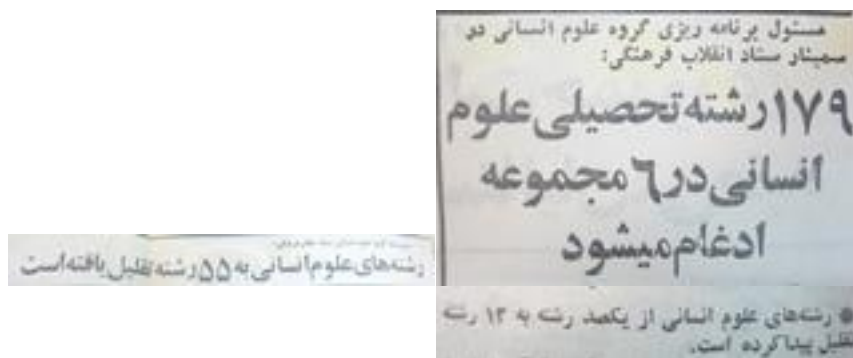 مسئول برنامه ریزی گروه علوم انسانی در
سمینار ستاد انقلاب فرهنگی:
۱۷۹ رشته تحصیلی علوم
انسانی در ۶ مجموعه
ادغام میشود
رشته‌های علوم انسانی به ۵۵ رشته تقلیل یافته است
* رشته‌های علوم انسانی از یکصد رشته به ۱۳ رشته
تقلیل پیدا کرده است.